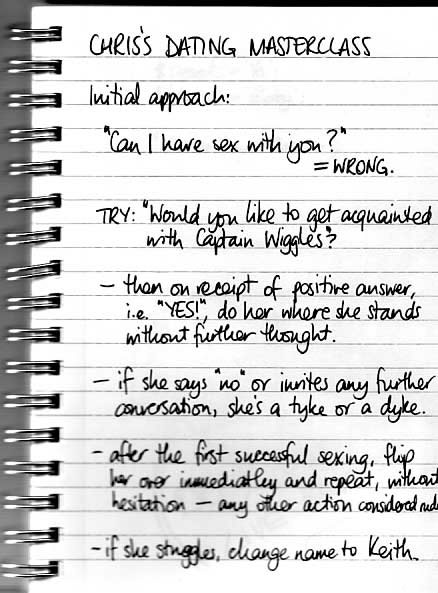 CHRIS'S DATING MASTERCLASS
Initial approach:
"Can I have sex with you?"
= WRONG.
TRY: "Would you like to get acquainted
with Captain Wiggles"?
- then on receipt of positive answer,
i.e. "YES!", do her where she stands
without further thought.
- if she says "no" or invites any further
conversation, she's a tyke or a dyke.
- after the first successful sexing, flip
her over immediatley and repeat, without
hesitation - any other action considered
- if she struggles, change name to Keith.